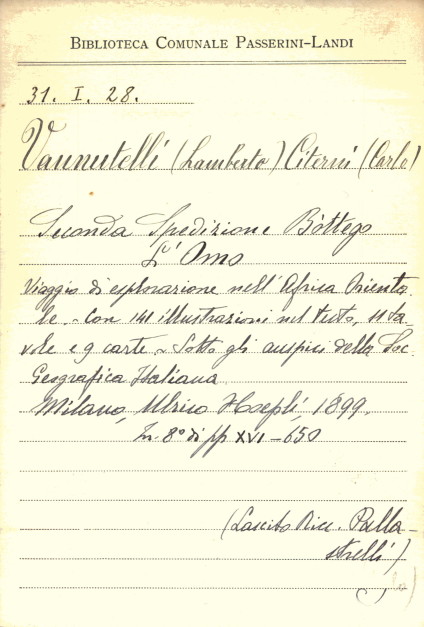 BIBLIOTECA COMUNALE PASSERINI-LANDI
31. I. 28.
Vannutelli (Lamberto) Citerni (Carlo)
Seconda Spedizione Bòttego
L'Omo
Viaggio di esplorazione nell'Africa Orienta
le. - Con 141 illustrazioni nel testo, 11 ta
vole e 9 carte - Sotto gli auspici della Soc.
Geografica Italiana
Milano, Ulrico Hoepli, 1899.
In 8° di pp XVI - 650
(Lascito Ricc. Palla-
strelli)